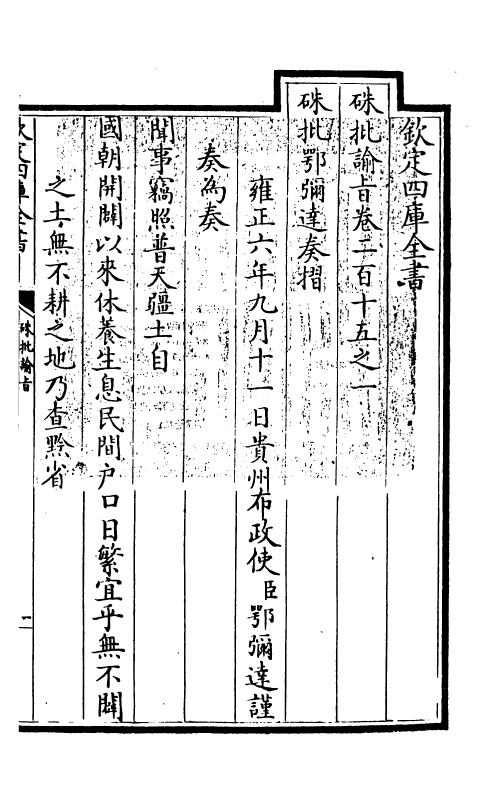 欽定四庫全書
硃批諭旨卷二百十五之一
硃批鄂彌達奏摺
雍正六年九月十一日貴州布政使臣鄂彌達謹
奏為奏
聞事竊照普天疆土自
國朝開闢以來休養生息民間户口日繁宜乎無不闢
之土無不耕之地乃查黔省
欽定四庫全書
硃批諭旨